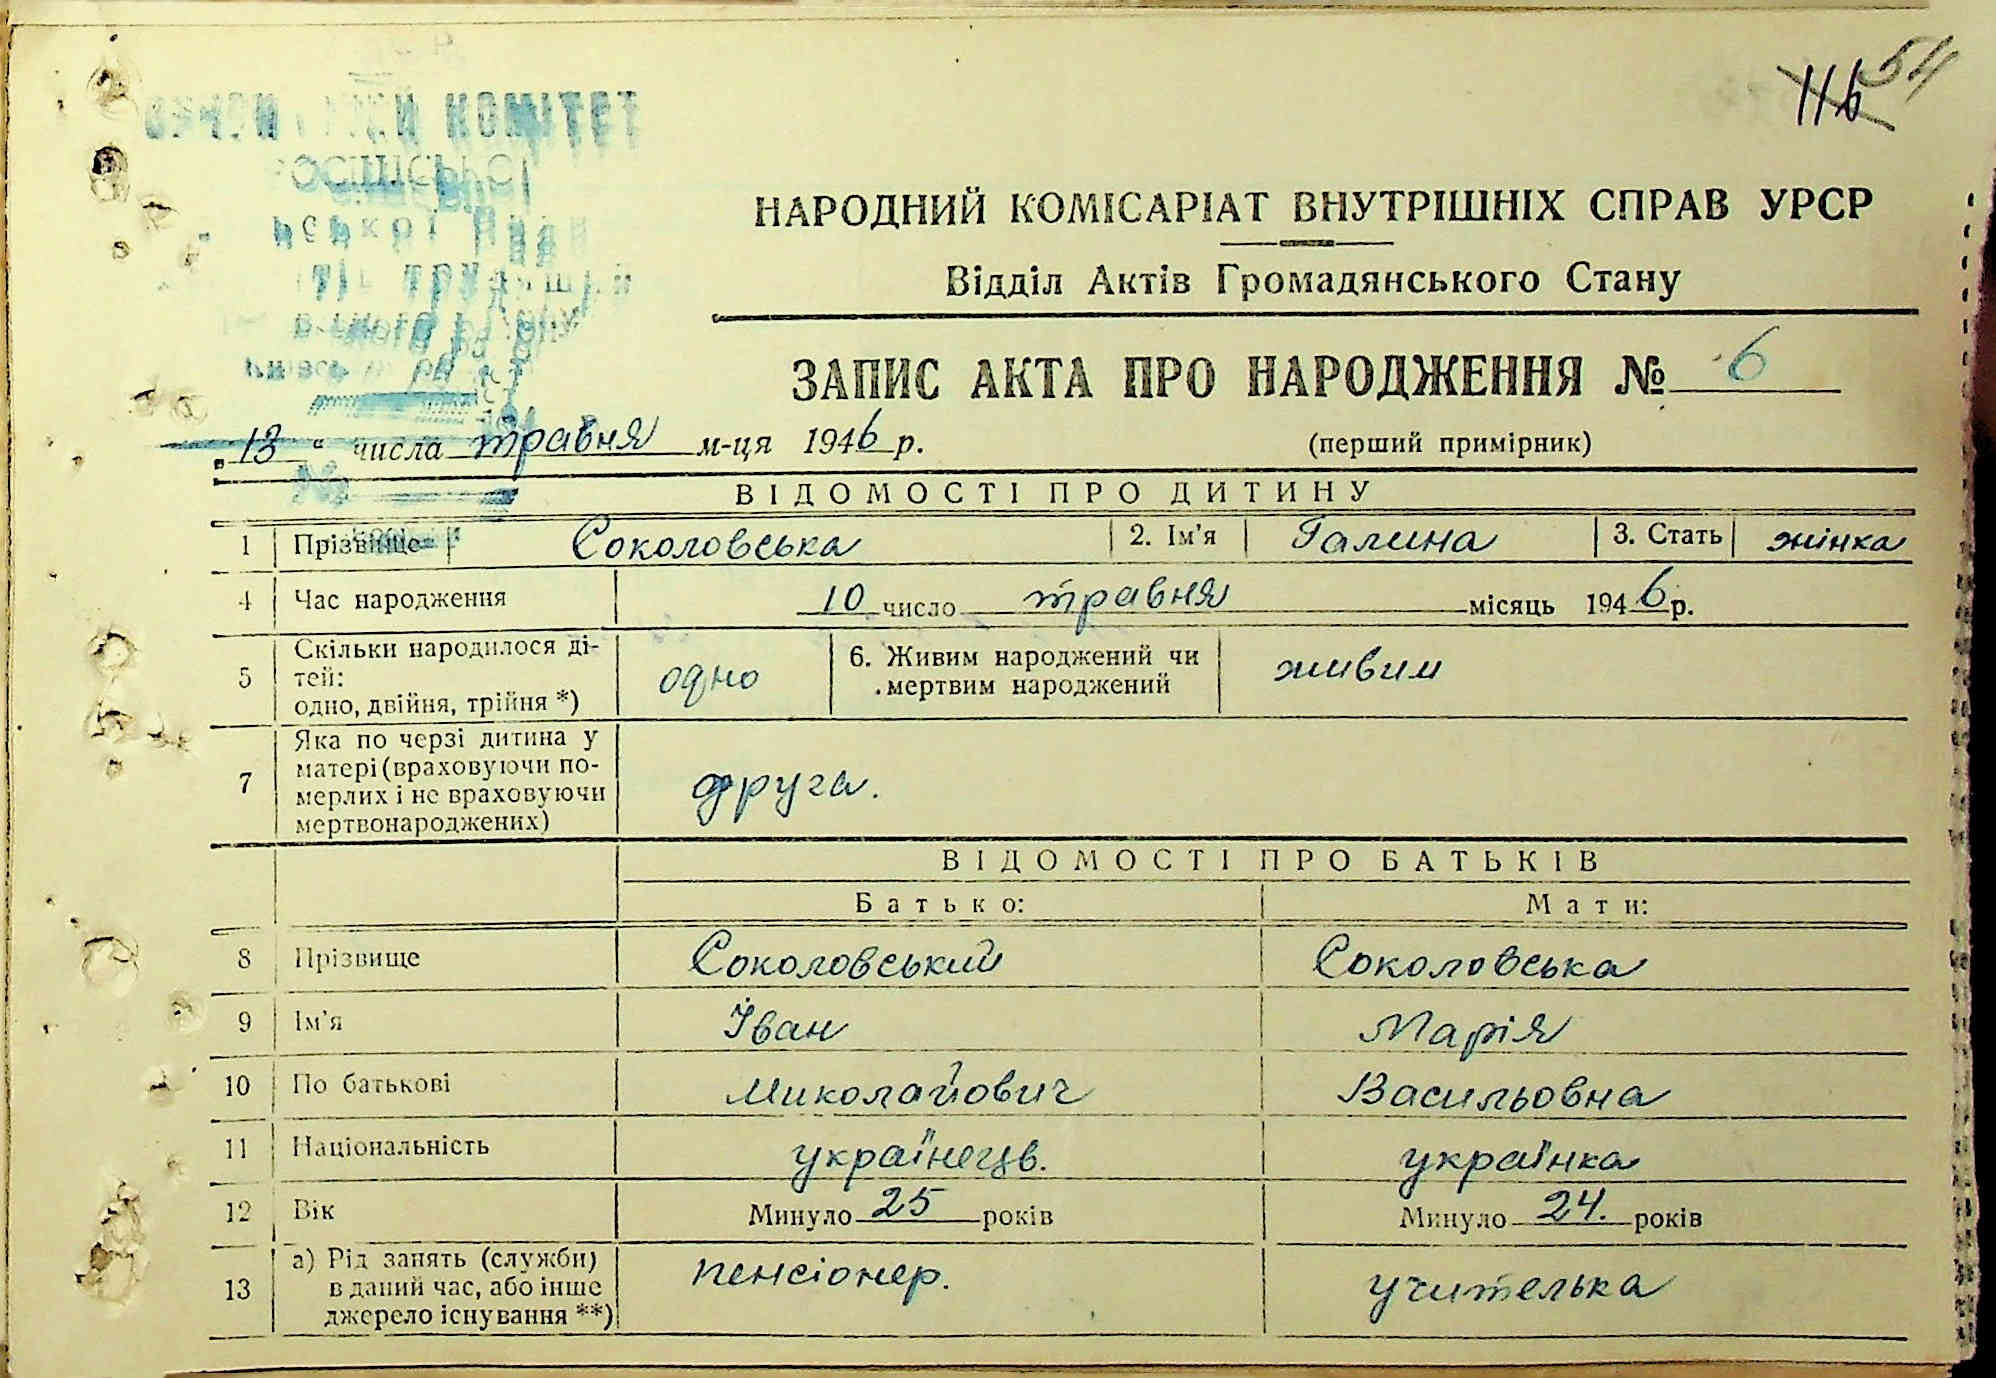 116 54
КОМІТЕТ
НАРОДНИЙ КОМІСАРІАТ ВНУТРІШНІХ СПРАВ УРСР
Відділ Актів Громадянського Стану
ЗАПИС АКТА ПРО НАРОДЖЕННЯ № 6
„13“ числа травня м-ця 1946 р. (перший примірник)
№
ВІДОМОСТІ ПРО ДИТИНУ
1 Прізвище Соколовська 2. Ім'я Галина 3. Стать жінка
4 Час народження 10 число травня місяць 1946 р.
5 Скільки народилося ді-
тей:
одно, двійня, трійня *) одно 6. Живим народжений чи
мертвим народжений живим
7 Яка по черзі дитина у
матері (враховуючи по-
мерлих і не враховуючи
мертвонароджених) друга.
ВІДОМОСТІ ПРО БАТЬКІВ
Батько: Мати:
8 Прізвище Соколовський Соколовська
9 Ім'я Іван Марія
10 По батькові Миколайович Васильовна
11 Національність українець. українка
12 Вік Минуло 25 років Минуло 24. років
13 а) Рід занять (служби)
в даний час, або інше
джерело існування **) пенсіонер. учителька